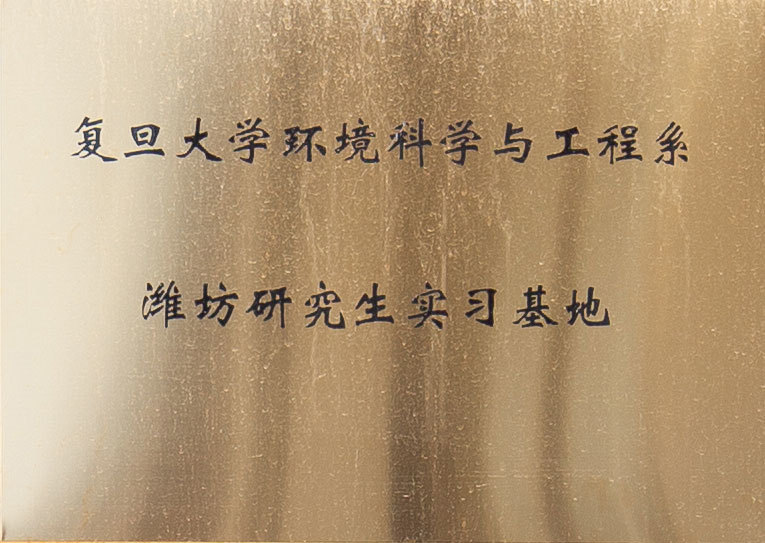 复旦大学环境科学与工程系
潍坊研究生实习基地